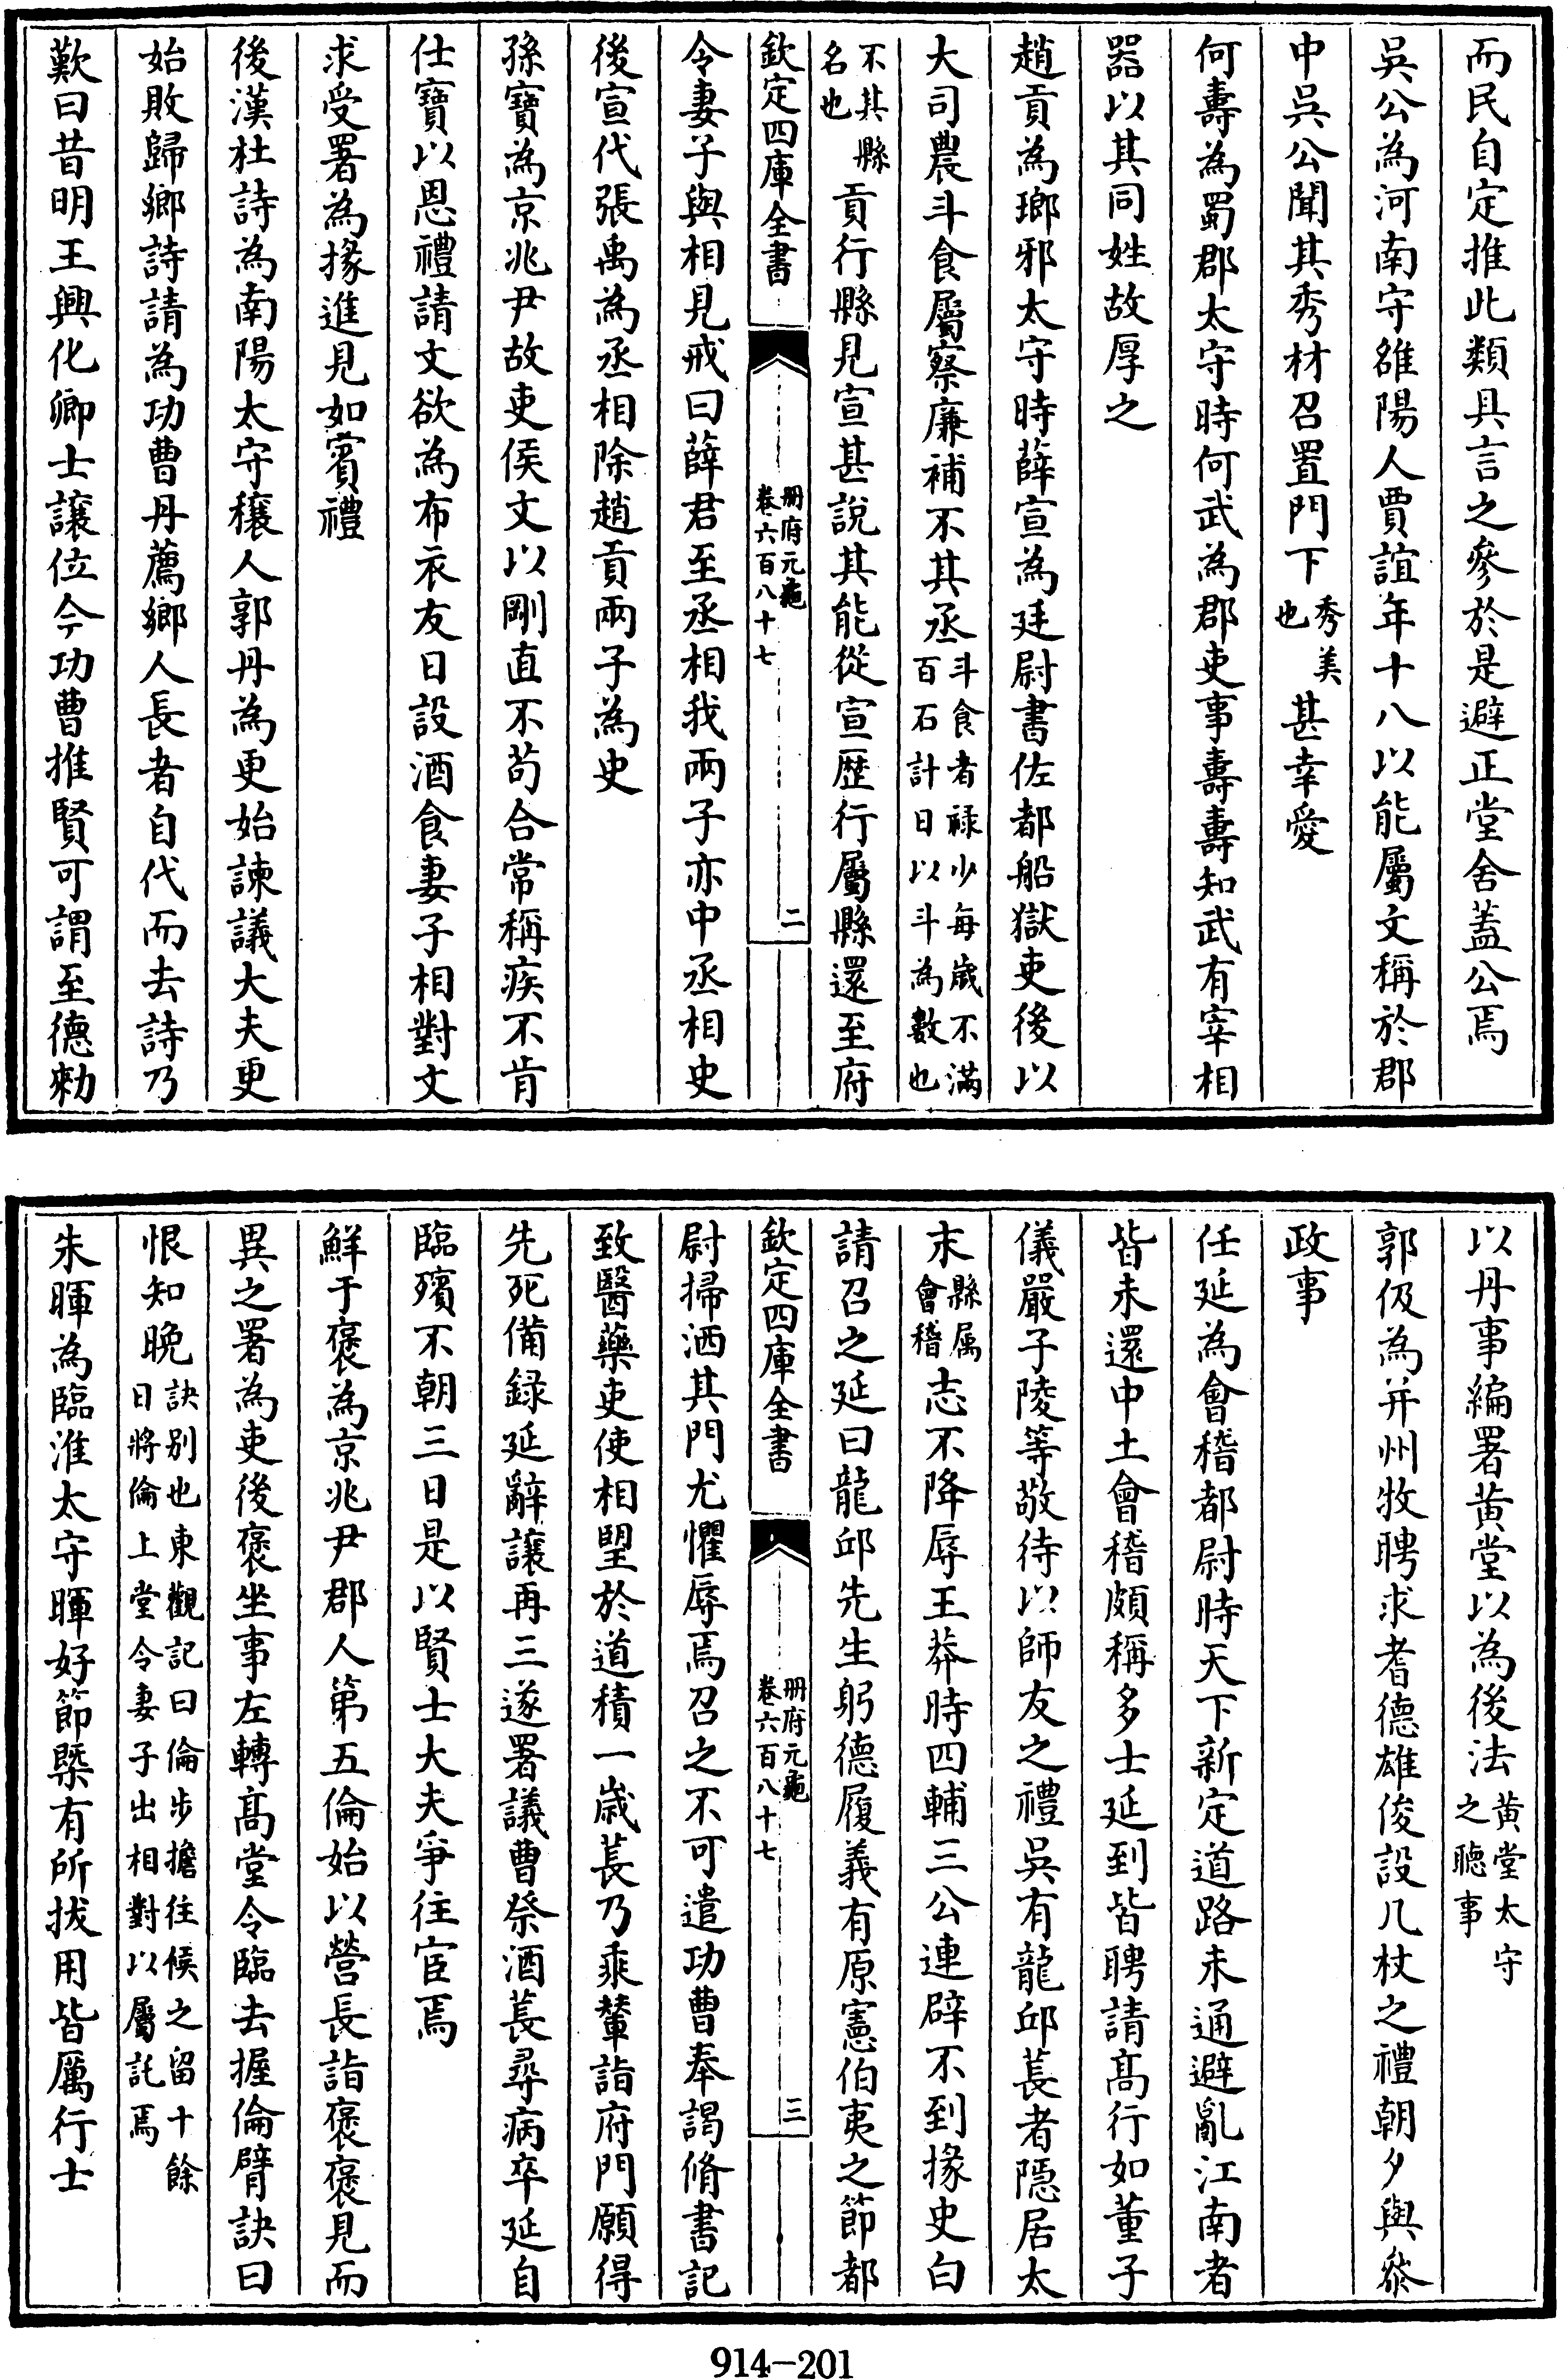 而民自定推此類具言之參於是避正堂舍蓋公焉
吳公為河南守雒陽人賈誼年十八以能屬文稱於郡
中吳公聞其秀材召置門下秀美也甚幸愛
何壽為蜀郡太守時何武為郡吏事壽壽知武有宰相
器以其同姓故厚之
趙貢為瑯邪太守時薛宣為廷尉書佐都船獄吏後以
大司農斗食屬察廉補不其丞斗食者禄少每歲不滿百石計日以斗為數也
不其縣名也貢行縣見宣甚說其能從宣歴行屬縣還至府
欽定四庫全書
冊府元龜
卷六百八十七
二
令妻子與相見戒曰薛君至丞相我兩子亦中丞相史
後宣代張禹為丞相除趙貢兩子為史
孫寶為京兆尹故吏侯文以剛直不茍合常稱疾不肯
仕寶以恩禮請文欲為布衣友日設酒食妻子相對文
求受署為掾進見如賓禮
後漢杜詩為南陽太守穰人郭丹為更始諫議大夫更
始敗歸鄉詩請為功曹丹薦鄉人長者自代而去詩乃
歎曰昔明王興化卿士讓位今功曹推賢可謂至德勑
以丹事編署黄堂以為後法黄堂太守之聽事
郭伋為并州牧聘求耆德雄俊設几杖之禮朝夕與叅
政事
任延為會稽都尉時天下新定道路未通避亂江南者
皆未還中土會稽頗稱多士延到皆聘請髙行如董子
儀嚴子陵等敬待以師友之禮吳有龍邱萇者隱居太
末縣属會稽志不降辱王莽時四輔三公連辟不到掾史白
請召之延曰龍邱先生躬德履義有原憲伯夷之節都
欽定四庫全書
冊府元龜
卷六百八十七
三
尉掃洒其門尤懼辱焉召之不可遣功曹奉謁脩書記
致醫藥吏使相望於道積一歲萇乃乘輦詣府門願得
先死備録延辭讓再三遂署議曹祭酒萇尋病卒延自
臨殯不朝三日是以賢士大夫爭往宦焉
鮮于褒為京兆尹郡人第五倫始以營長詣褒褒見而
異之署為吏後褒坐事左轉髙堂令臨去握倫臂訣曰
恨知晚訣别也東觀記曰倫步擔往候之留十餘日將倫上堂令妻子出相對以屬託焉
朱暉為臨淮太守暉好節槩有所拔用皆厲行士
914-201